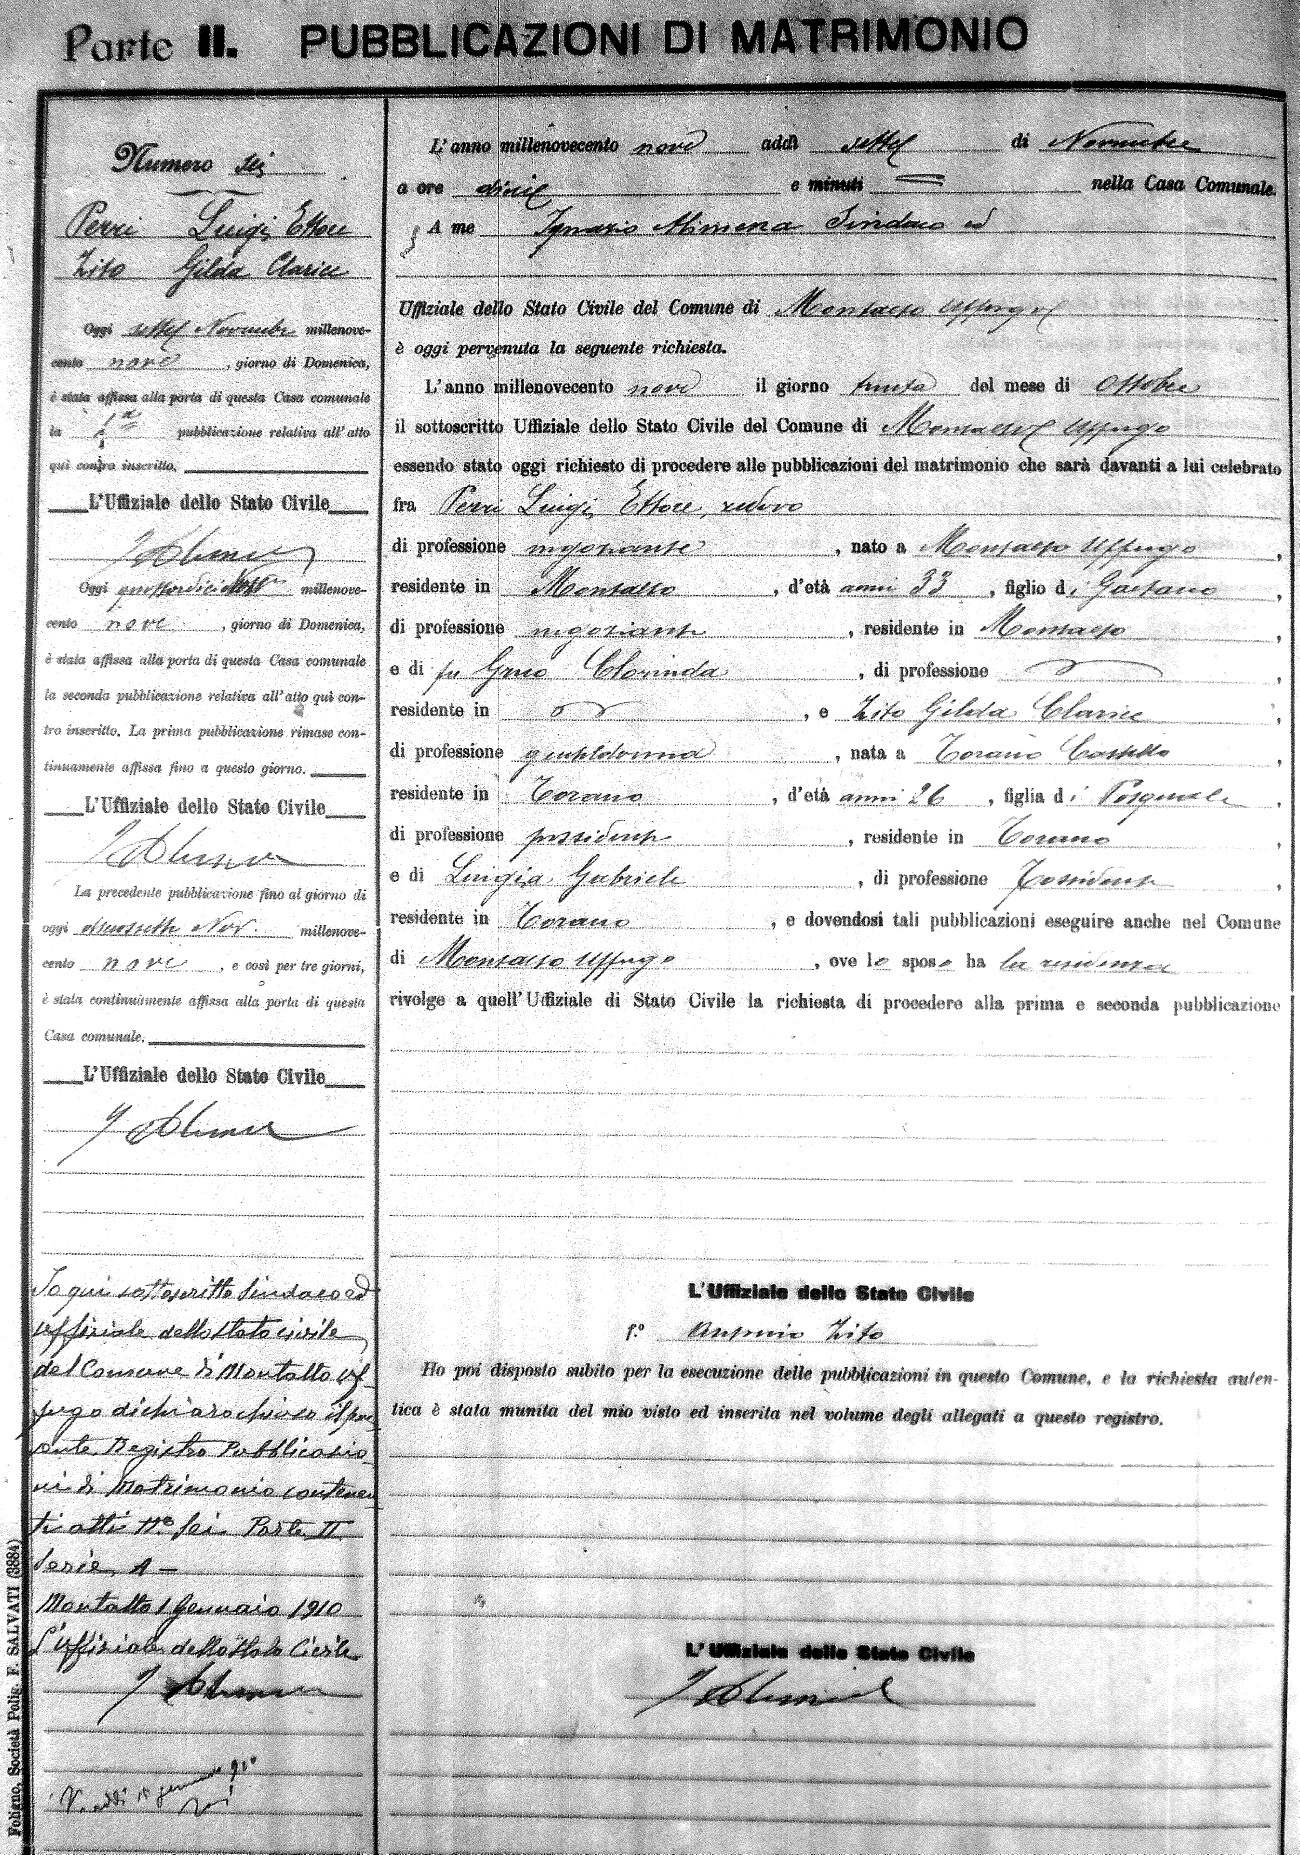 Parte II. PUBBLICAZIONI DI MATRIMONIO
Numero sei
Perri Luigi Ettore
Zito Gilda Clarice
Oggi sette Novembre millenove-
cento nove, giorno di Domenica,
è stata affissa alla porta di questa Casa comunale
la 1a pubblicazione relativa all'atto
qui contro inscritto.
L'Uffiziale dello Stato Civile
Oggi quattordici millenove-
cento nove, giorno di Domenica,
è stata affissa alla porta di questa Casa comunale
la seconda pubblicazione relativa all'atto qui con-
tro inscritto. La prima pubblicazione rimase con-
tinuamente affissa fino a questo giorno.
L'Uffiziale dello Stato Civile
La precedente pubblicazione fino al giorno di
oggi Nov. millenove-
cento nove, e così per tre giorni,
è stata continuamente affissa alla porta di questa
Casa comunale.
L'Uffiziale dello Stato Civile
Io qui sottoscritto Sindaco ed
Uffiziale dello Stato Civile
del Comune di Montalto Uf-
fugo dichiaro chiuso il pre-
sente Registro Pubblicazio-
ni di Matrimonio contenen-
ti atti No. sei Parte II
Serie A -
Montalto 1 Gennaio 1910
L'Uffiziale dello Stato Civile
Foligno, Società Polig. F. SALVATI (3884)
L'anno millenovecento nove addì sette di Novembre
a ore dieci e minuti = nella Casa Comunale.
A me Ignazio Alimena Sindaco ed
Uffiziale dello Stato Civile del Comune di Montalto Uffugo
è oggi pervenuta la seguente richiesta.
L'anno millenovecento nove il giorno trenta del mese di Ottobre
il sottoscritto Uffiziale dello Stato Civile del Comune di Montalto Uffugo
essendo stato oggi richiesto di procedere alle pubblicazioni del matrimonio che sarà davanti a lui celebrato
fra Perri Luigi Ettore, vedovo
di professione negoziante, nato a Montalto Uffugo,
residente in Montalto, d'età anni 33, figlio di Gaetano,
di professione negoziante, residente in Montalto,
e di fu Greco Clorinda, di professione
residente in , e Zito Gilda Clarice,
di professione gentildonna, nata a Torano Castello,
residente in Torano, d'età anni 26, figlia di Pasquale,
di professione possidente, residente in Torano,
e di Luigia Gabriele, di professione Possidente,
residente in Torano, e dovendosi tali pubblicazioni eseguire anche nel Comune
di Montalto Uffugo, ove lo sposo ha la residenza
rivolge a quell'Uffiziale di Stato Civile la richiesta di procedere alla prima e seconda pubblicazione
L'Uffiziale dello Stato Civile
f.o Antonio Zito
Ho poi disposto subito per la esecuzione delle pubblicazioni in questo Comune, e la richiesta auten-
tica è stata munita del mio visto ed inserita nel volume degli allegati a questo registro.
L'Uffiziale dello Stato Civile